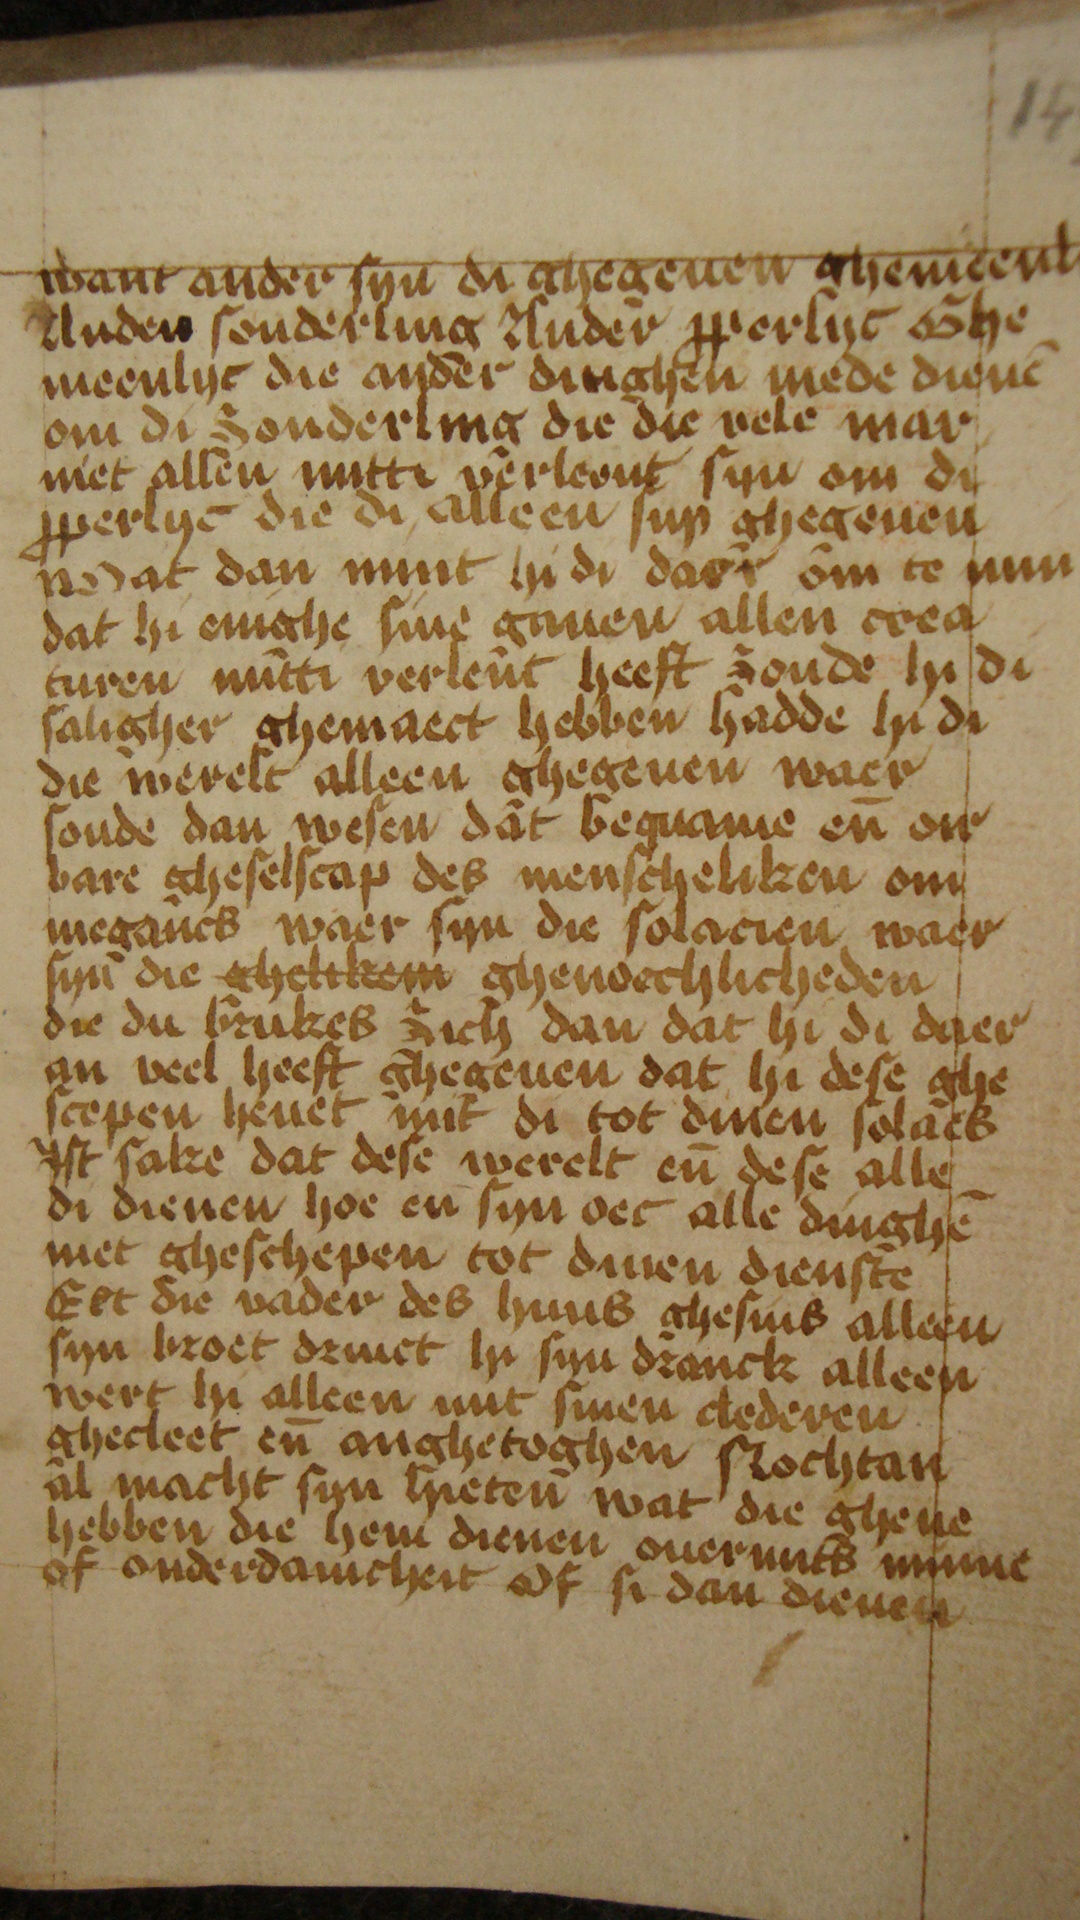 14
want ander syn di ghegeuen ghemeenl
Anden sonderling Ander pperlijc Ghe
meenlijc die ander dinghen mede dienē
om di Zonderling die die vele mar
niet allen mitti verleent syn om di
pperlijc die di alleen syn ghegeuen
Wat dan mint hi di daer om te min
dat hi enighe sine gauen allen crea
turen mitti verleent heeft Zoude hi di
saligher ghemaect hebben hadde hi di
die werelt alleen ghegeuen waer
soude dan wesen dat bequame en̄ or
bare gheselscap des menscheliken om
megancs waer syn die solacien waer
syn die ghenoechlicheden
die du brukes Zich dan dat hi di daer
an veel heeft ghegeuen dat hi dese ghe
scepen heuet mit di tot dinen solaes
Ist sake dat dese werelt en̄ dese alle
di dienen hoe en syn oec alle dinghē
niet gheschepen tot dinen dienste
Eet die vader des huus ghesins alleen
syn broet drinct hi syn dranck alleen
wert hi alleen mit sinen clederen
ghecleet en̄ anghetoghen Nochtan
al macht syn hieten wat die ghene
hebben die hem dienen ouermits minne
of onderdanicheit Of si dan dienen